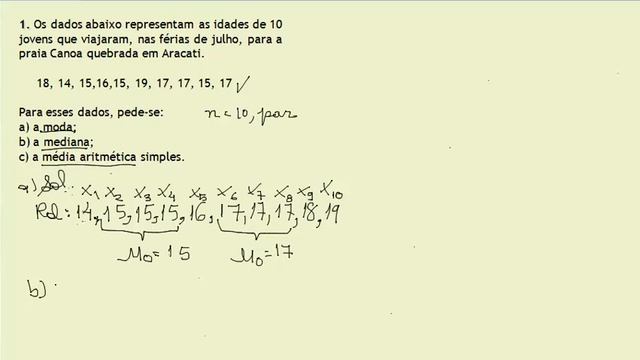 1. Os dados abaixo representam as idades de 10
jovens que viajaram, nas férias de julho, para a
praia Canoa quebrada em Aracati.
18, 14, 15,16,15, 19, 17, 17, 15, 17 ✓
Para esses dados, pede-se:
n = 10, par
a) a moda;
b) a mediana;
c) a média aritmética simples.
a) Sol: x1 x2 x3 x4 x5 x6 x7 x8 x9 x10
Rol: 14, 15, 15, 15, 16, 17, 17, 17, 18, 19
Mo = 15 Mo = 17
b)